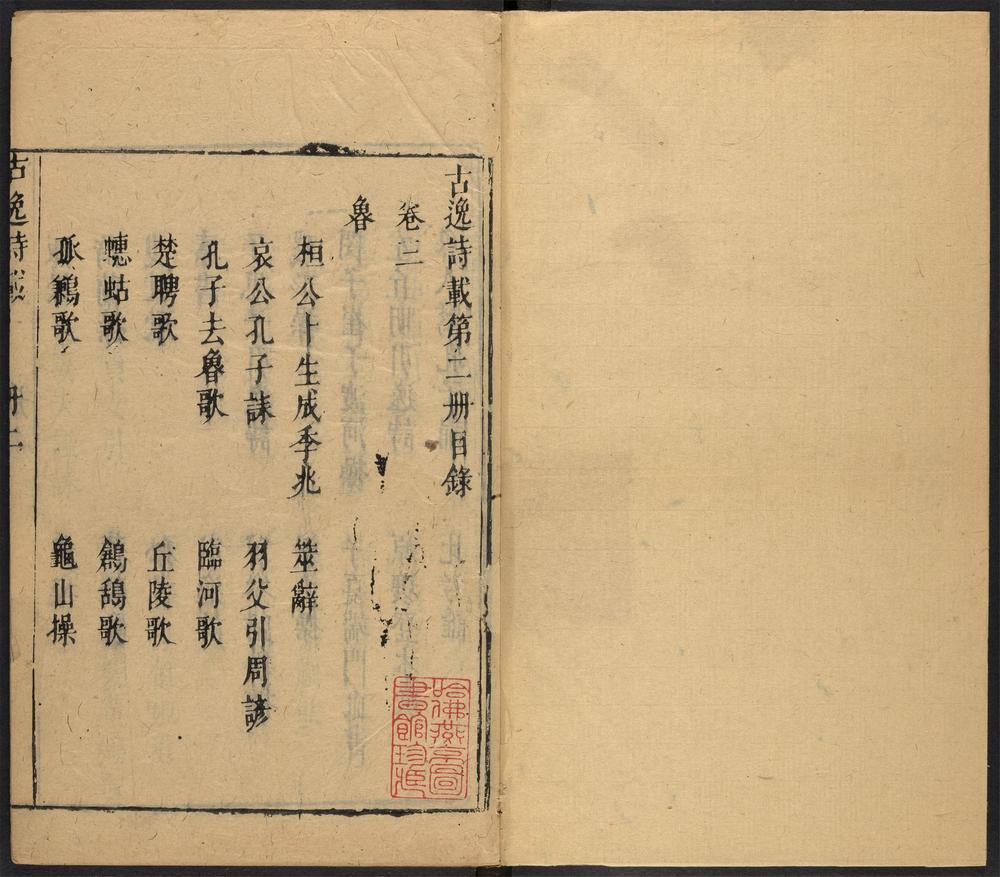 古逸詩載第二册目錄
卷三
魯
桓公卜生成季兆　筮辭
哀公孔子誄　羽父引周諺
孔子去魯歌　臨河歌
楚聘歌　丘陵歌
蟪蛄歌　鶬鴰歌
歌　龜山操
古逸詩載　册二
哈佛燕京圖
書館珍藏